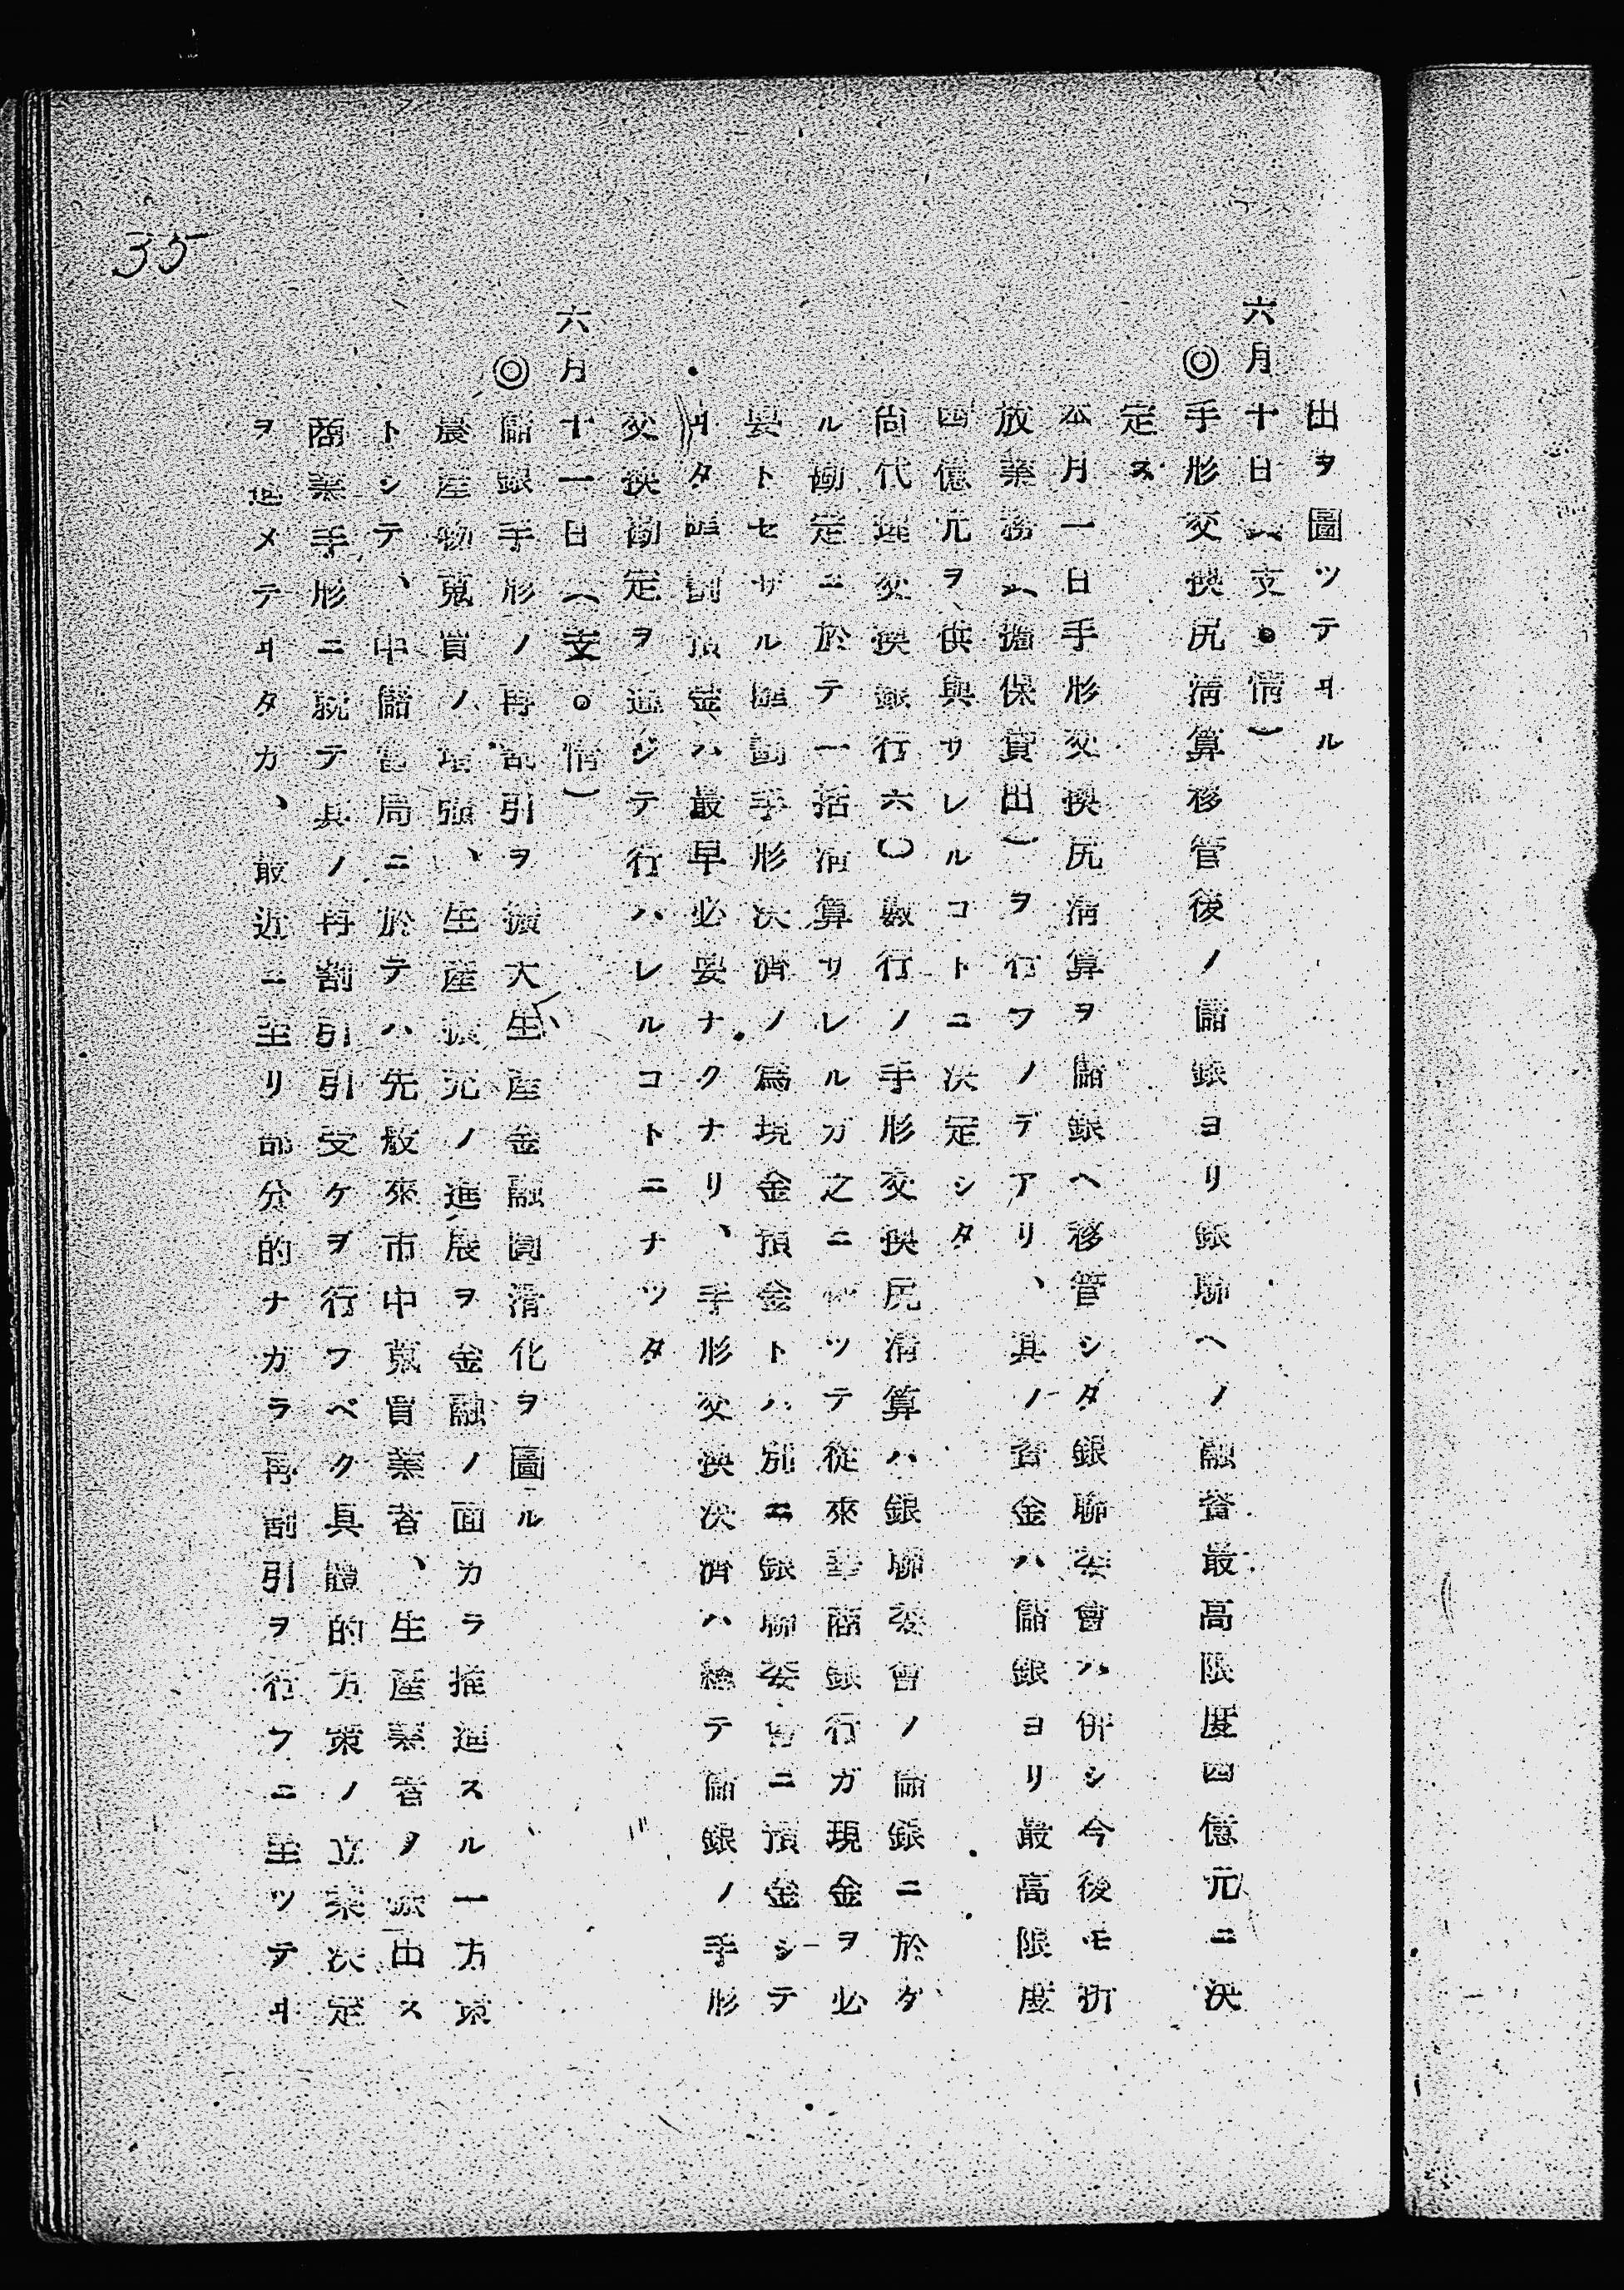 35
出ヲ圖ツテヰル
六月十日（支。情）
◎手形交換尻淸算移管後ノ儲銀ヨリ銀聯ヘノ融資最高限度四億元ニ決
定ス
本月一日手形交換尻淸算ヲ儲銀ヘ移管シタ銀聯委會ハ併シ今後モ拆
放業務（擔保貸出）ヲ行フノデアリ、其ノ資金ハ儲銀ヨリ最高限度
四億元ヲ供與サレルコトニ決定シタ
尚代理交換銀行六〇數行ノ手形交換尻淸算ハ銀聯委會ノ儲銀ニ於ケ
ル勘定ニ於テ一括淸算サレルガ之ニ ツテ從來華商銀行ガ現金ヲ必
要トセザル匯劃手形決濟ノ爲現金預金トハ別ニ銀聯委會ニ預金シテ
ヰタ匯劃預金ハ最早必要ナクナリ、手形交換決濟ハ總テ儲銀ノ手形
交換勘定ヲ通ジテ行ハレルコトニナツタ
六月十一日（支。情）
◎儲銀手形ノ再割引ヲ擴大生產金融圓滑化ヲ圖ル
農產物蒐買ノ增强、生產擴充ノ進展ヲ金融ノ面カラ推進スル一方策
トシテ、中儲當局ニ於テハ先般來市中蒐買業者、生產業者ノ振出ス
商業手形ニ就テ其ノ再割引引受ケヲ行フベク具體的方策ノ立案決定
ヲ進メテヰタガ、最近ニ至リ部分的ナガラ再割引ヲ行フニ至ツテヰ